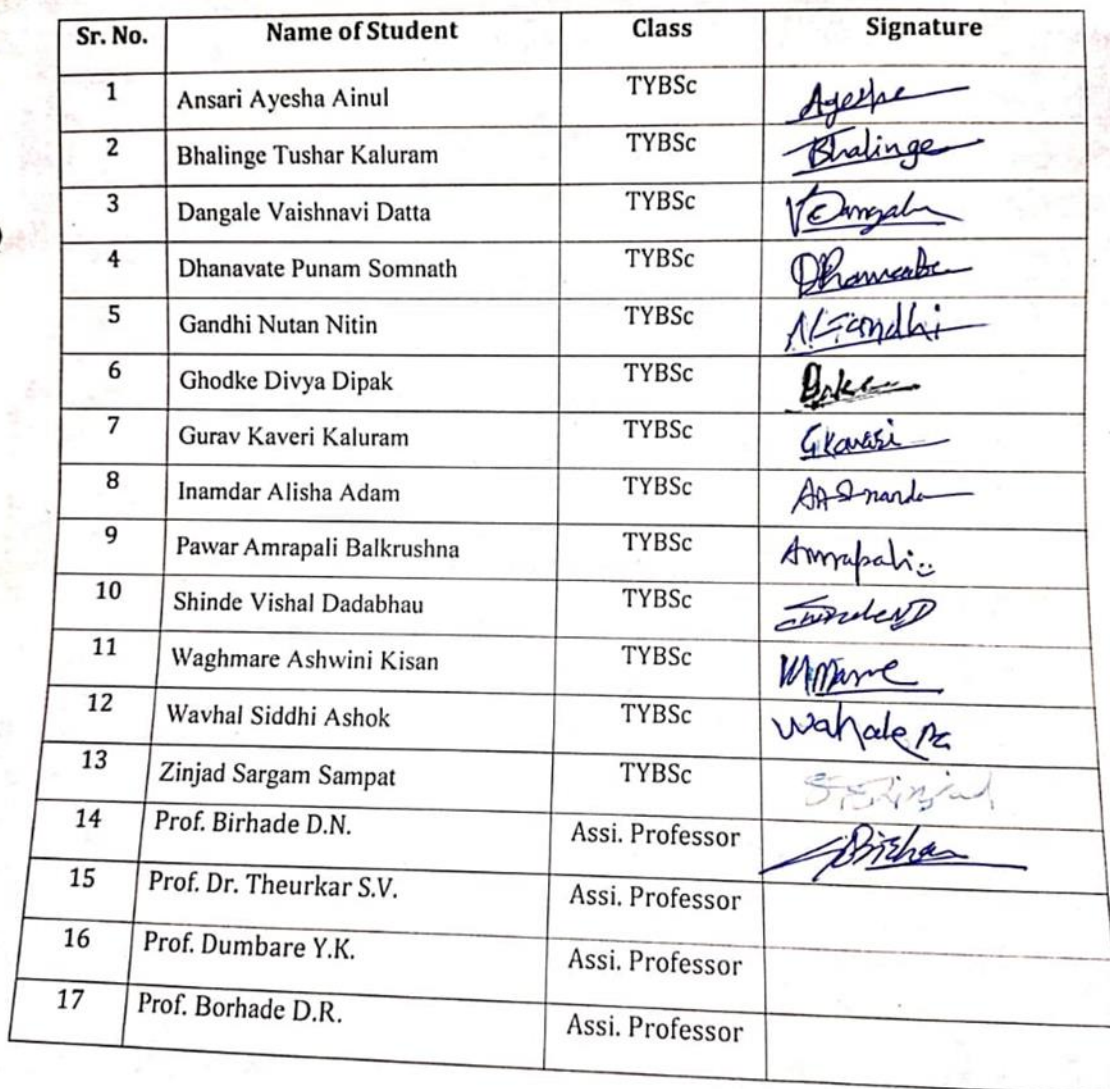 Sr. No. Name of Student Class Signature
1 Ansari Ayesha Ainul TYBSc Ayesha
2 Bhalinge Tushar Kaluram TYBSc Bhalinge
3 Dangale Vaishnavi Datta TYBSc
4 Dhanavate Punam Somnath TYBSc
5 Gandhi Nutan Nitin TYBSc N Gandhi
6 Ghodke Divya Dipak TYBSc
7 Gurav Kaveri Kaluram TYBSc
8 Inamdar Alisha Adam TYBSc
9 Pawar Amrapali Balkrushna TYBSc Amrapali
10 Shinde Vishal Dadabhau TYBSc
11 Waghmare Ashwini Kisan TYBSc
12 Wavhal Siddhi Ashok TYBSc
13 Zinjad Sargam Sampat TYBSc S.S.Zinjad
14 Prof. Birhade D.N. Assi. Professor
15 Prof. Dr. Theurkar S.V. Assi. Professor
16 Prof. Dumbare Y.K. Assi. Professor
17 Prof. Borhade D.R. Assi. Professor